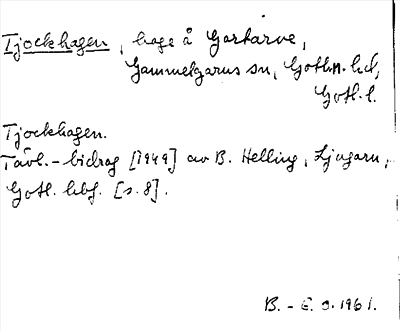 Tjockhagen, hage å Gartarve,
Gammelgarns sn, Gothn. hd,
Gotl. l.
Tjockhagen.
Tävl.-bidrag [1949] av B. Helling, Ljugarn,
Gotl. hbf. [s. 8].
B. - E. O. 1961.